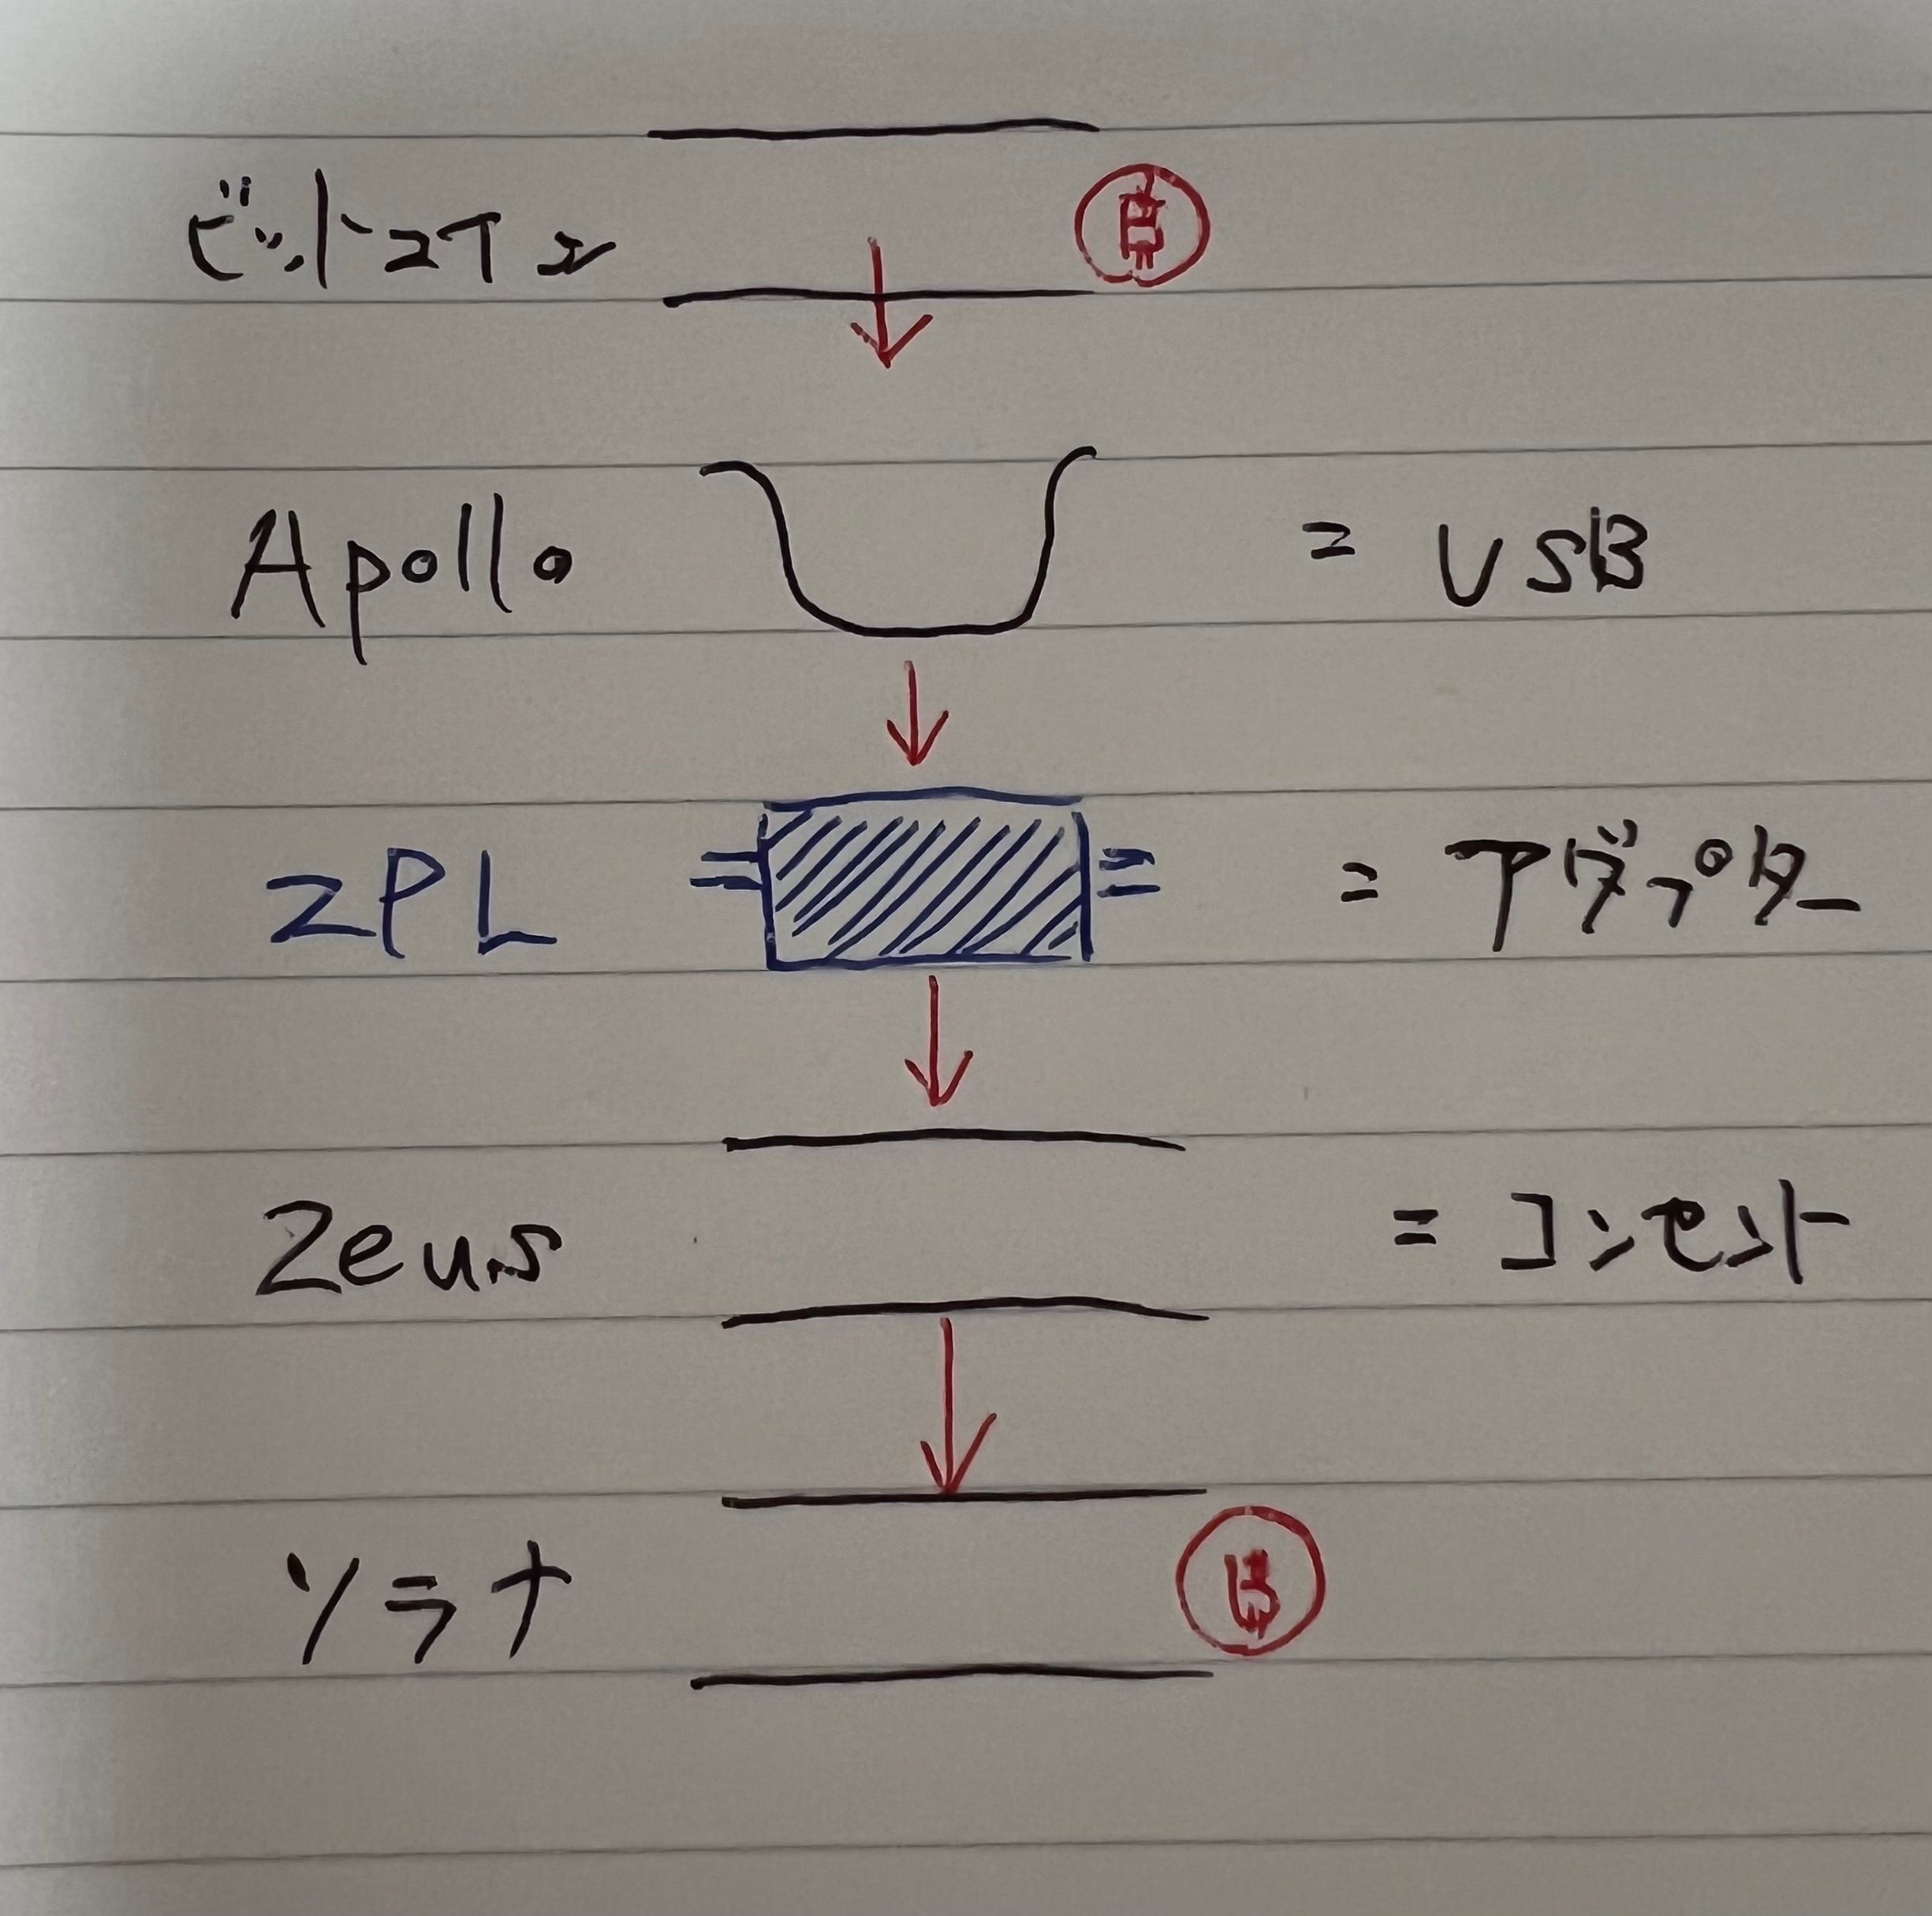 ビットコイン ₿
Apollo = USB
ZPL = アダプター
Zeus = コンセント
ソラナ ₿